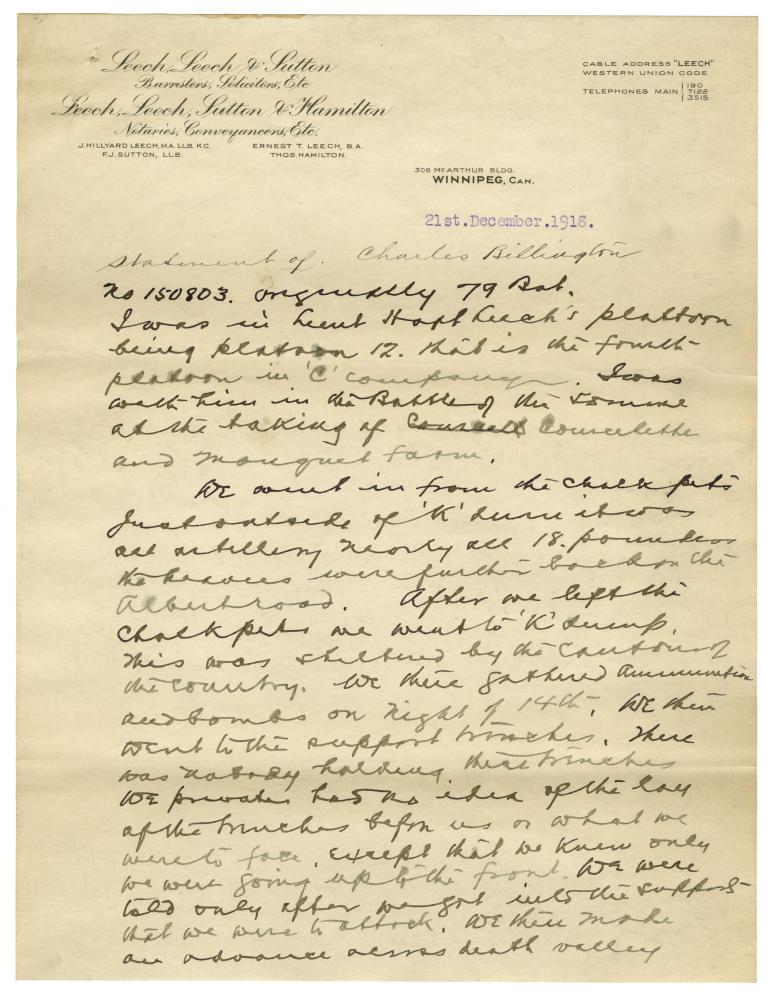 Leech, Leech & Sutton
Barristers, Solicitors, Etc
Leech, Leech, Sutton & Hamilton
Notaries, Conveyancers, Etc.
J. HILLYARD LEECH, M.A. LL.B. K.C. ERNEST T. LEECH, B.A.
F.J. SUTTON, LL.B. THOS. HAMILTON.
CABLE ADDRESS "LEECH"
WESTERN UNION CODE
TELEPHONES MAIN 190
7122
3515
306 McARTHUR BLDG.
WINNIPEG, CAN.
21st.December.1918.
Statement of. Charles Billington
No 150803. originally 79 Bat.
I was in Lieut Hart Leech's plattoon
being platoon 12. that is the fourth
platoon in 'C' company. I was
with him in the Battle of the Somme
at the taking of Courcelette
and Mouquet Farm.
We went in from the chalk pits
Just outside of 'K' dump it was
all artillery nearly all 18. pounders
the heavies were further back on the
Albert road. After we left the
chalk pits we went to 'K' dump.
This was sheltered by the contour of
the country. We there gathered Ammunition
and bombs on night of 14th. We then
went to the support trenches. There
was nobody holding these trenches
We privates had no idea of the lay
of the trenches before us or what we
were to face. except that we knew only
we were going up to the front. We were
told only after we got into the supports
that we were to attack. We then made
an advance across death valley